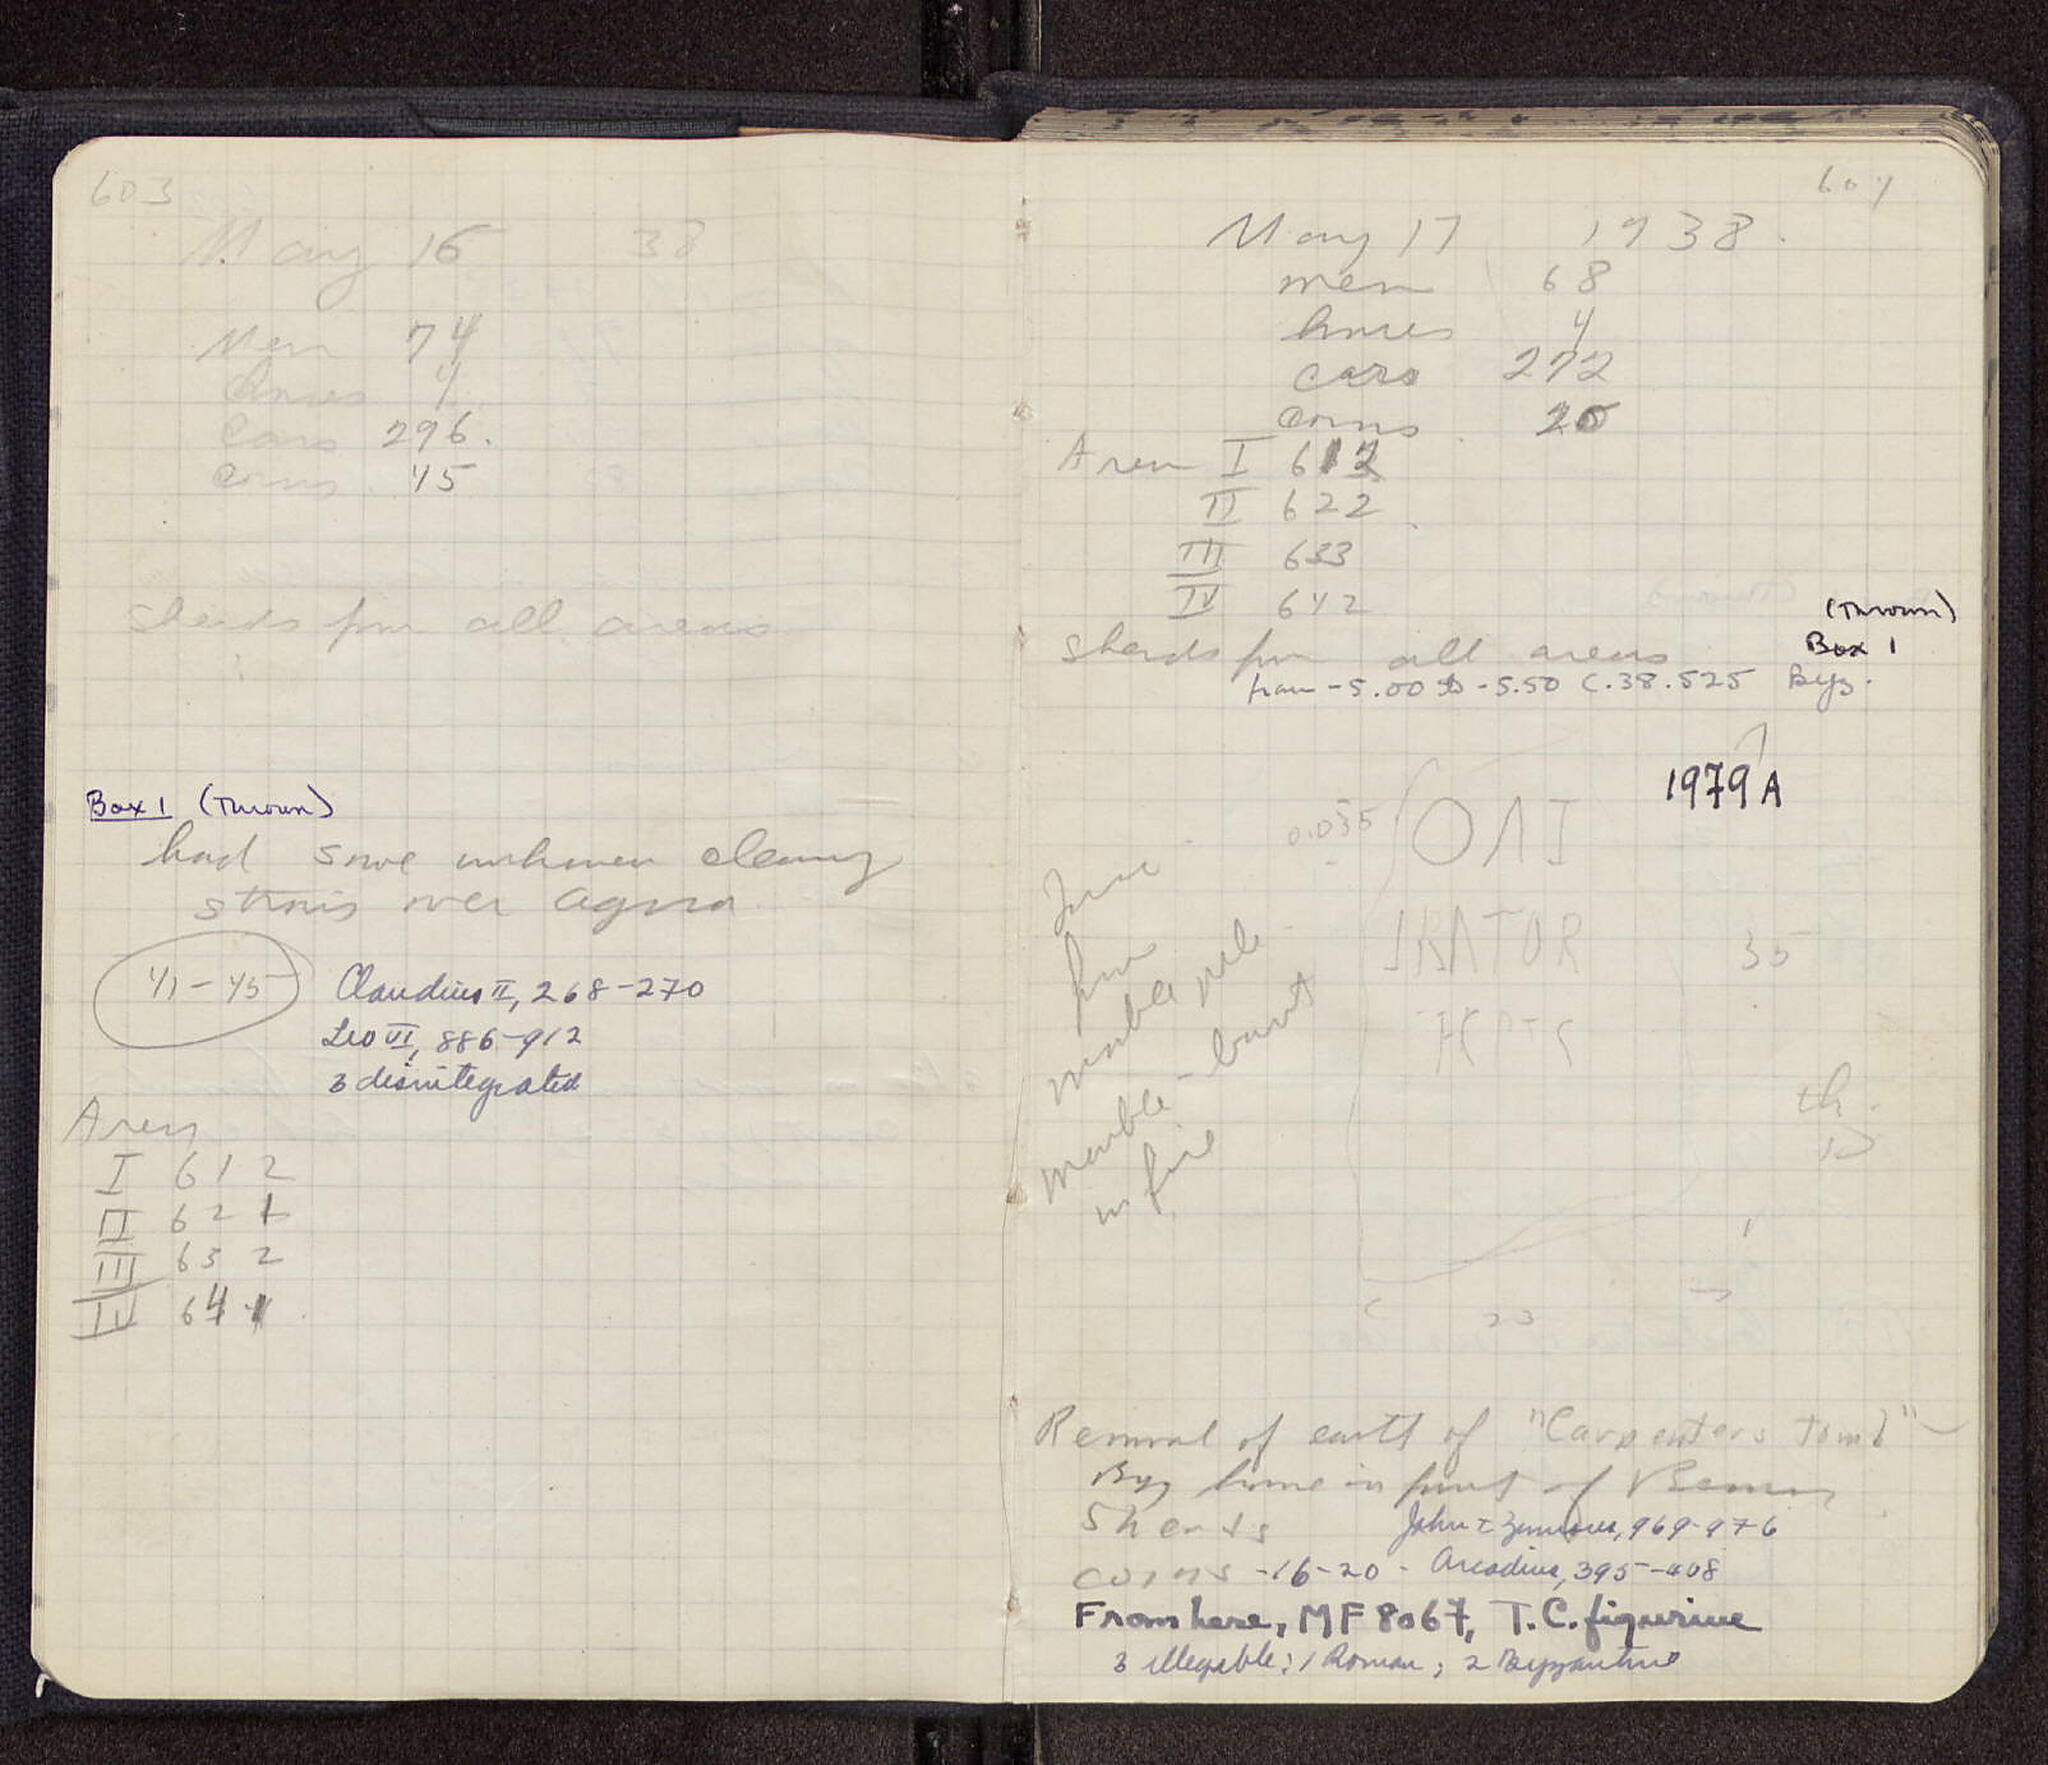 603
May 16 38
Men 74
horses 4
Cars 296.
coins 45
Sherds from all areas
Box 1 (Thrown)
had some unknown cleaning
over agora
41-45 Claudius II, 268-270
Leo VI, 886-912
3 disintegrated
Area
I 612
II 621
III 632
IV 641
604
May 17 1938.
men 68
horses 4
cars 272
coins 20
Area I 612
II 622
III 633
IV 642
(Thrown)
Sherds from all areas Box 1
from -5.00 to -5.50 C.38.525 Byz.
1979A
0.035 OΛI
RATOR 35
from
marble pile
marble - burnt
in fire
th.
23
Removal of earth of "Carpenters tomb" -
Byz house in front of Bema
Sherds John I Zimisces, 969-976
coins -16-20- Arcadius, 395-408
From here, MF 8067, T.C. figurine
3 illegable: 1 Roman; 2 Byzantine